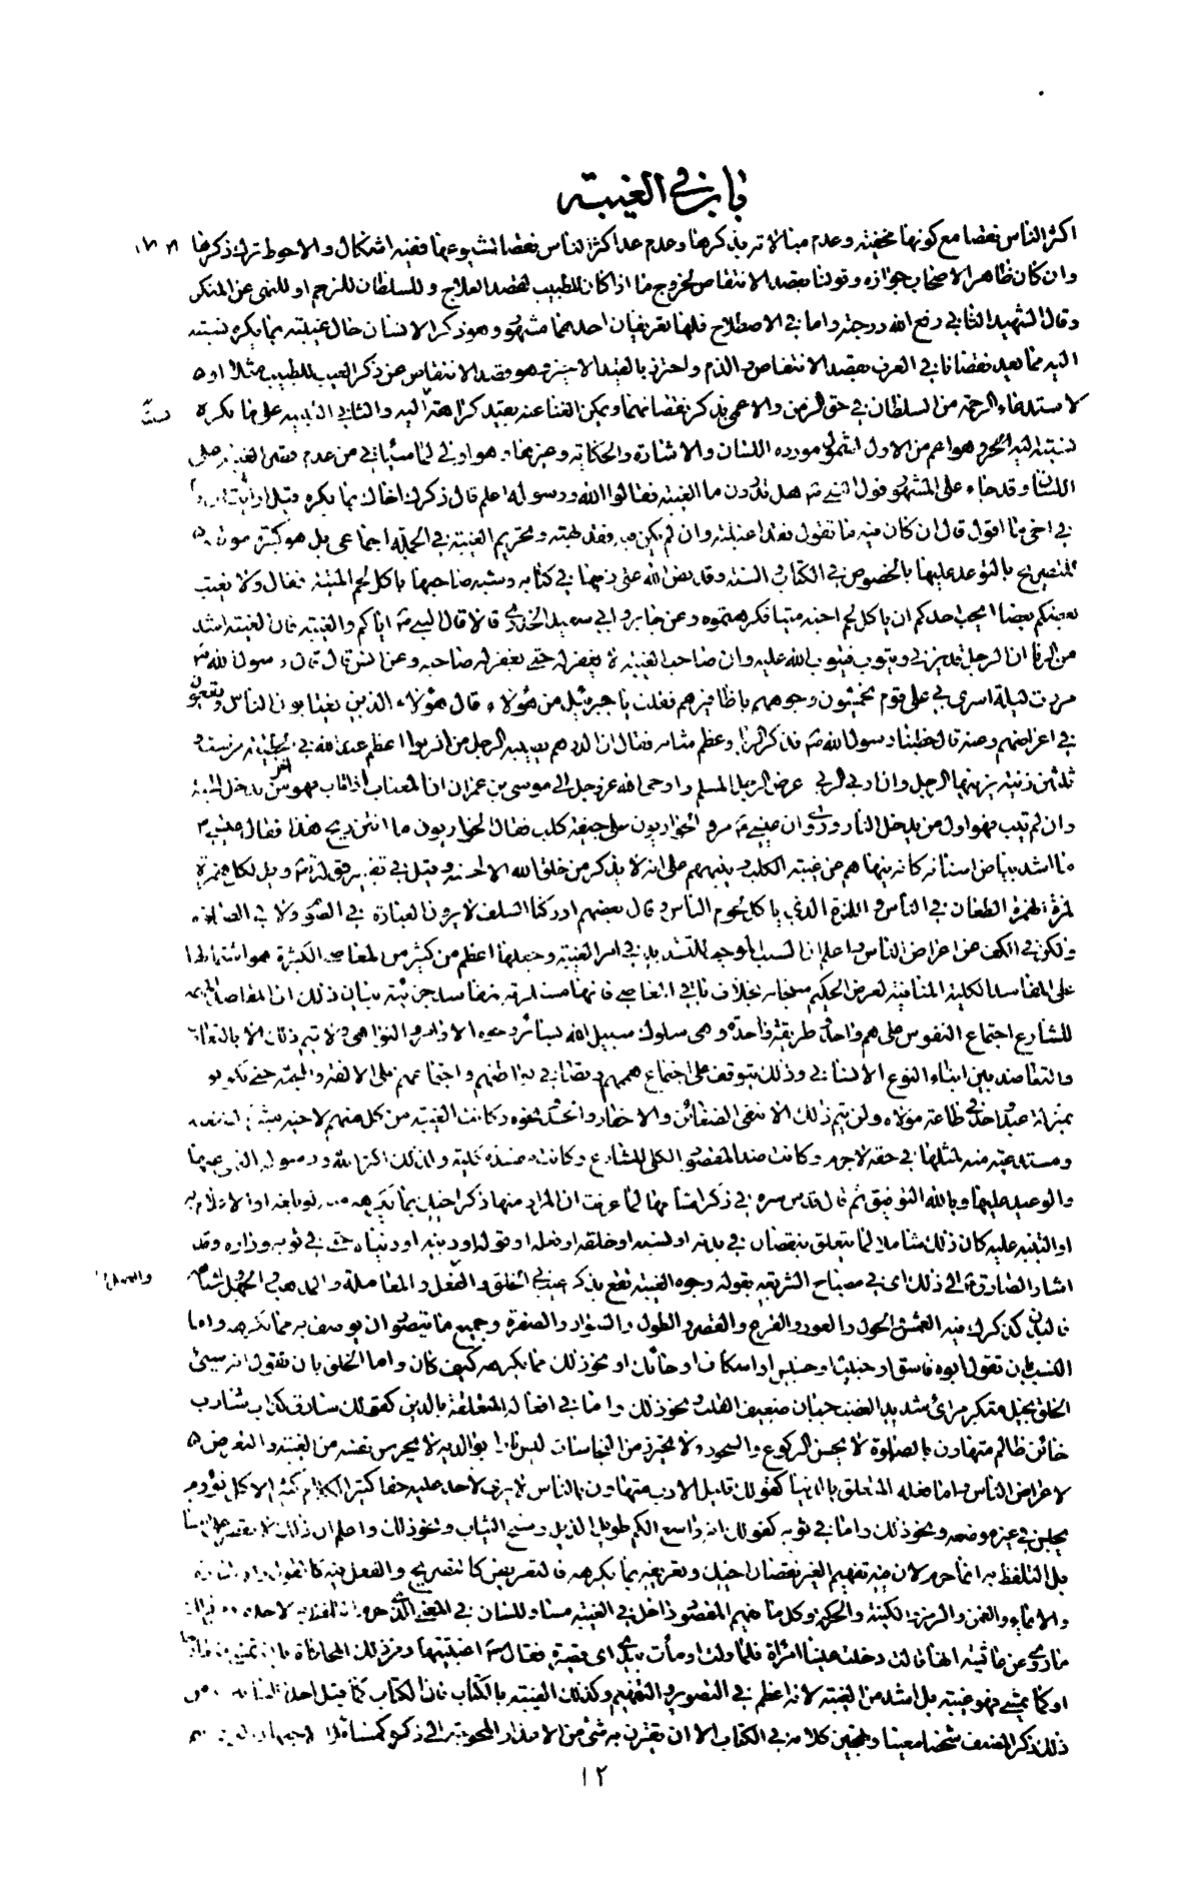 باب في الغيبة
اكثر الناس نقصا مع كونها مخفية وعدم مبالاته بذكرها وعدم عد اكثر الناس نقصا لشيوعها ففيه اشكال والاحوط ترك ذكرها
وان كان ظاهر الاصحاب جوازه وقولنا بقصد الانتقاص لخروج ما اذا كان للطبيب لقصد العلاج وللسلطان للترحم او للنهي عن المنكر
وقال الشهيد الثاني رفع الله درجته واما في الاصطلاح فلها تعريفان احدهما مشهور وهو ذكر الانسان حال غيبته بما يكره نسبته
اليه مما يعد نقصانا في العرف بقصد الانتقاص والذم واحترز بالقيد الاخير وهو قصد الانتقاص عن ذكر العيب للطبيب مثلا او
لاستدعاء الرحمة من السلطان في حق الزمن والاعمى بذكر نقصانهما ويمكن الغنا عنه بقيد كراهته اليه والثاني التنبيه على ما يكره
نسبته اليه الخ وهو اعم من الاول لشمول مورده اللسان والاشارة والحكاية وغيرها وهو اولى لما سيأتي من عدم قصر الغيبة على
اللسان وقد جاء على المشهور قول النبي ص هل تدرون ما الغيبة فقالوا الله ورسوله اعلم قال ذكرك اخاك بما يكره قيل ارأيت ان
في اخي ما اقول قال ان كان فيه ما تقول فقد اغتبته وان لم يكن فيه فقد بهته وتحريم الغيبة في الجملة اجماعي بل هو كبيرة موبقة
للتصريح بالتوعد عليها بالخصوص في الكتاب والسنة وقد نص الله على ذمها في كتابه وشبه صاحبها باكل لحم الميتة فقال ولا يغتب
بعضكم بعضا ايحب احدكم ان ياكل لحم اخيه ميتا فكرهتموه وعن جابر وابي سعيد الخدري قالا قال النبي ص اياكم والغيبة فان الغيبة اشد
من الزنا ان الرجل قد يزني ويتوب فيتوب الله عليه وان صاحب الغيبة لا يغفر له حتى يغفر له صاحبه وعن انس قال قال رسول الله ص
مررت ليلة اسري بي على قوم يخمشون وجوههم باظافيرهم فقلت يا جبرئيل من هؤلاء قال هؤلاء الذين يغتابون الناس ويقعون
في اعراضهم وعنه قال خطبنا رسول الله ص فذكر الربا وعظم شانه فقال ان الدرهم يصيبه الرجل من الربوا اعظم عند الله في الخطيئة من ستة و
ثلثين زنية يزنيها الرجل وان اربى الربى عرض الرجل المسلم واوحى الله عز وجل الى موسى بن عمران ان المغتاب اذا تاب فهو اخر من يدخل الجنة
وان لم يتب فهو اول من يدخل النار وروي ان عيسى ع مر والحواريون على جيفة كلب فقال الحواريون ما انتن ريح هذا فقال عيسى ع
ما اشد بياض اسنانه كانه ينهاهم عن غيبة الكلب وينبههم على انه لا يذكر من خلق الله الا احسنه وقيل في تفسير قوله تعالى ويل لكل همزة
لمزة الهمزة الطعان في الناس واللمزة الذي ياكل لحوم الناس وقال بعضهم ادركنا السلف لا يرون العبادة في الصوم ولا في الصلوة
ولكن في الكف عن اعراض الناس واعلم ان السبب الموجب للتشديد في امر الغيبة وجعلها اعظم من كثير من المعاصي الكبيرة هو اشتمالها
على المفاسد الكلية المنافية لغرض الحكيم سبحانه بخلاف باقي المعاصي فانها مستلزمة لمفاسد جزئية بيان ذلك ان المقاصد المهمة
للشارع اجتماع النفوس على هم واحد وطريقة واحدة وهي سلوك سبيل الله بسائر وجوه الاوامر والنواهي ولا يتم ذلك الا بالتعاون
والتعاضد بين ابناء النوع الانساني وذلك يتوقف على اجتماع هممهم وتصافي بواطنهم واجتماعهم على الالفة والمحبة حتى يكونوا
بمنزلة عبد واحد في طاعة مولاه ولن يتم ذلك الا بنفي الضغائن والاحقاد والحسد ونحوه وكانت الغيبة من كل منهم لاخيه مثيرة لضغنه
ومستدعية منه لمثلها في حقه لاجرم وكانت ضد المقصود الكلي للشارع وكانت مفسدة كلية ولذلك اكثر الله ورسوله النهي عنها
والوعيد عليها وبالله التوفيق ثم قال قدس سره في ذكر اقسامها لما عرفت ان المراد منها ذكر اخيك بما يكرهه
او التنبيه عليه كان ذلك شاملا لما يتعلق بنقصان في بدنه او نسبه او خلقه او فعله او قوله او دينه او دنياه حتى في ثوبه وداره وقد
اشار الصادق ع الى ذلك اي في مصباح الشريعة بقوله وجوه الغيبة تقع بذكر عيب في الخلق والفعل والمعاملة والمذهب والجهل واشباهه
فالبدن كذكرك فيه العمش والحول والعور والقرع والقصر والطول والسواد والصفرة وجميع ما يتصور ان يوصف به مما يكرهه واما
النسب بان تقول ابوه فاسق او خبيث او خسيس او اسكاف او حائك او نحو ذلك مما يكرهه كيف كان واما الخلق بان تقول انه سيئ
الخلق بخيل متكبر مرائي شديد الغضب جبان ضعيف القلب ونحو ذلك واما في افعاله المتعلقة بالدين كقولك سارق كذاب شارب
خائن ظالم متهاون بالصلوة لا يحسن الركوع والسجود ولا يحترز من النجاسات ليس بارا بوالديه لا يحرس نفسه من الغيبة والتعرض
لاعراض الناس واما فعله المتعلق بالدنيا كقولك قليل الادب متهاون بالناس لا يرى لاحد عليه حقا كثير الكلام كثير الاكل نؤوم
يجلس في غير موضعه ونحو ذلك واما في ثوبه كقولك انه واسع الكم طويل الذيل وسخ الثياب ونحو ذلك واعلم ان ذلك لا يقصر على اللسان
بل التلفظ به انما حرم لان فيه تفهيم الغير نقصان اخيك وتعريفه بما يكرهه فالتعريض كالتصريح والفعل فيه كالقول والاشارة
والايماء والغمز والرمز والكتبة والحركة وكل ما يفهم المقصود داخل في الغيبة مساو للسان في المعنى الذي حرم التلفظ به لاجله
ما روي عن عائشة انها قالت دخلت علينا امرأة فلما ولت اومأت بيدي اي قصيرة فقال ص اغتبتيها ومن ذلك المحاكاة بان تمشي متعارجا
او كما يمشي فهو غيبة بل اشد من الغيبة لانه اعظم في التصوير والتفهيم وكذلك الغيبة بالكتاب فان الكتاب كما قيل احد اللسانين
ذلك ذكر المصنف شخصا معينا وتهجين كلامه في الكتاب الا ان يقترن به شئ من الاعذار المحوجة الى ذكره كمسائل
١٢